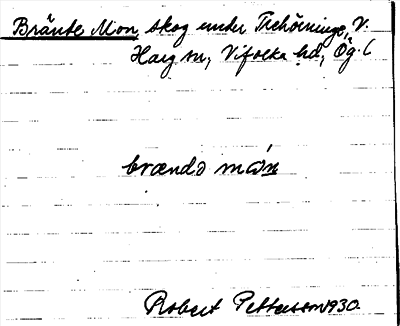 Bränte Mon, skog under Trehörninge, V.
Harg sn, Vifolka hd, Ög. l
brændə mɷ́n
Robert Pettersson 1930.